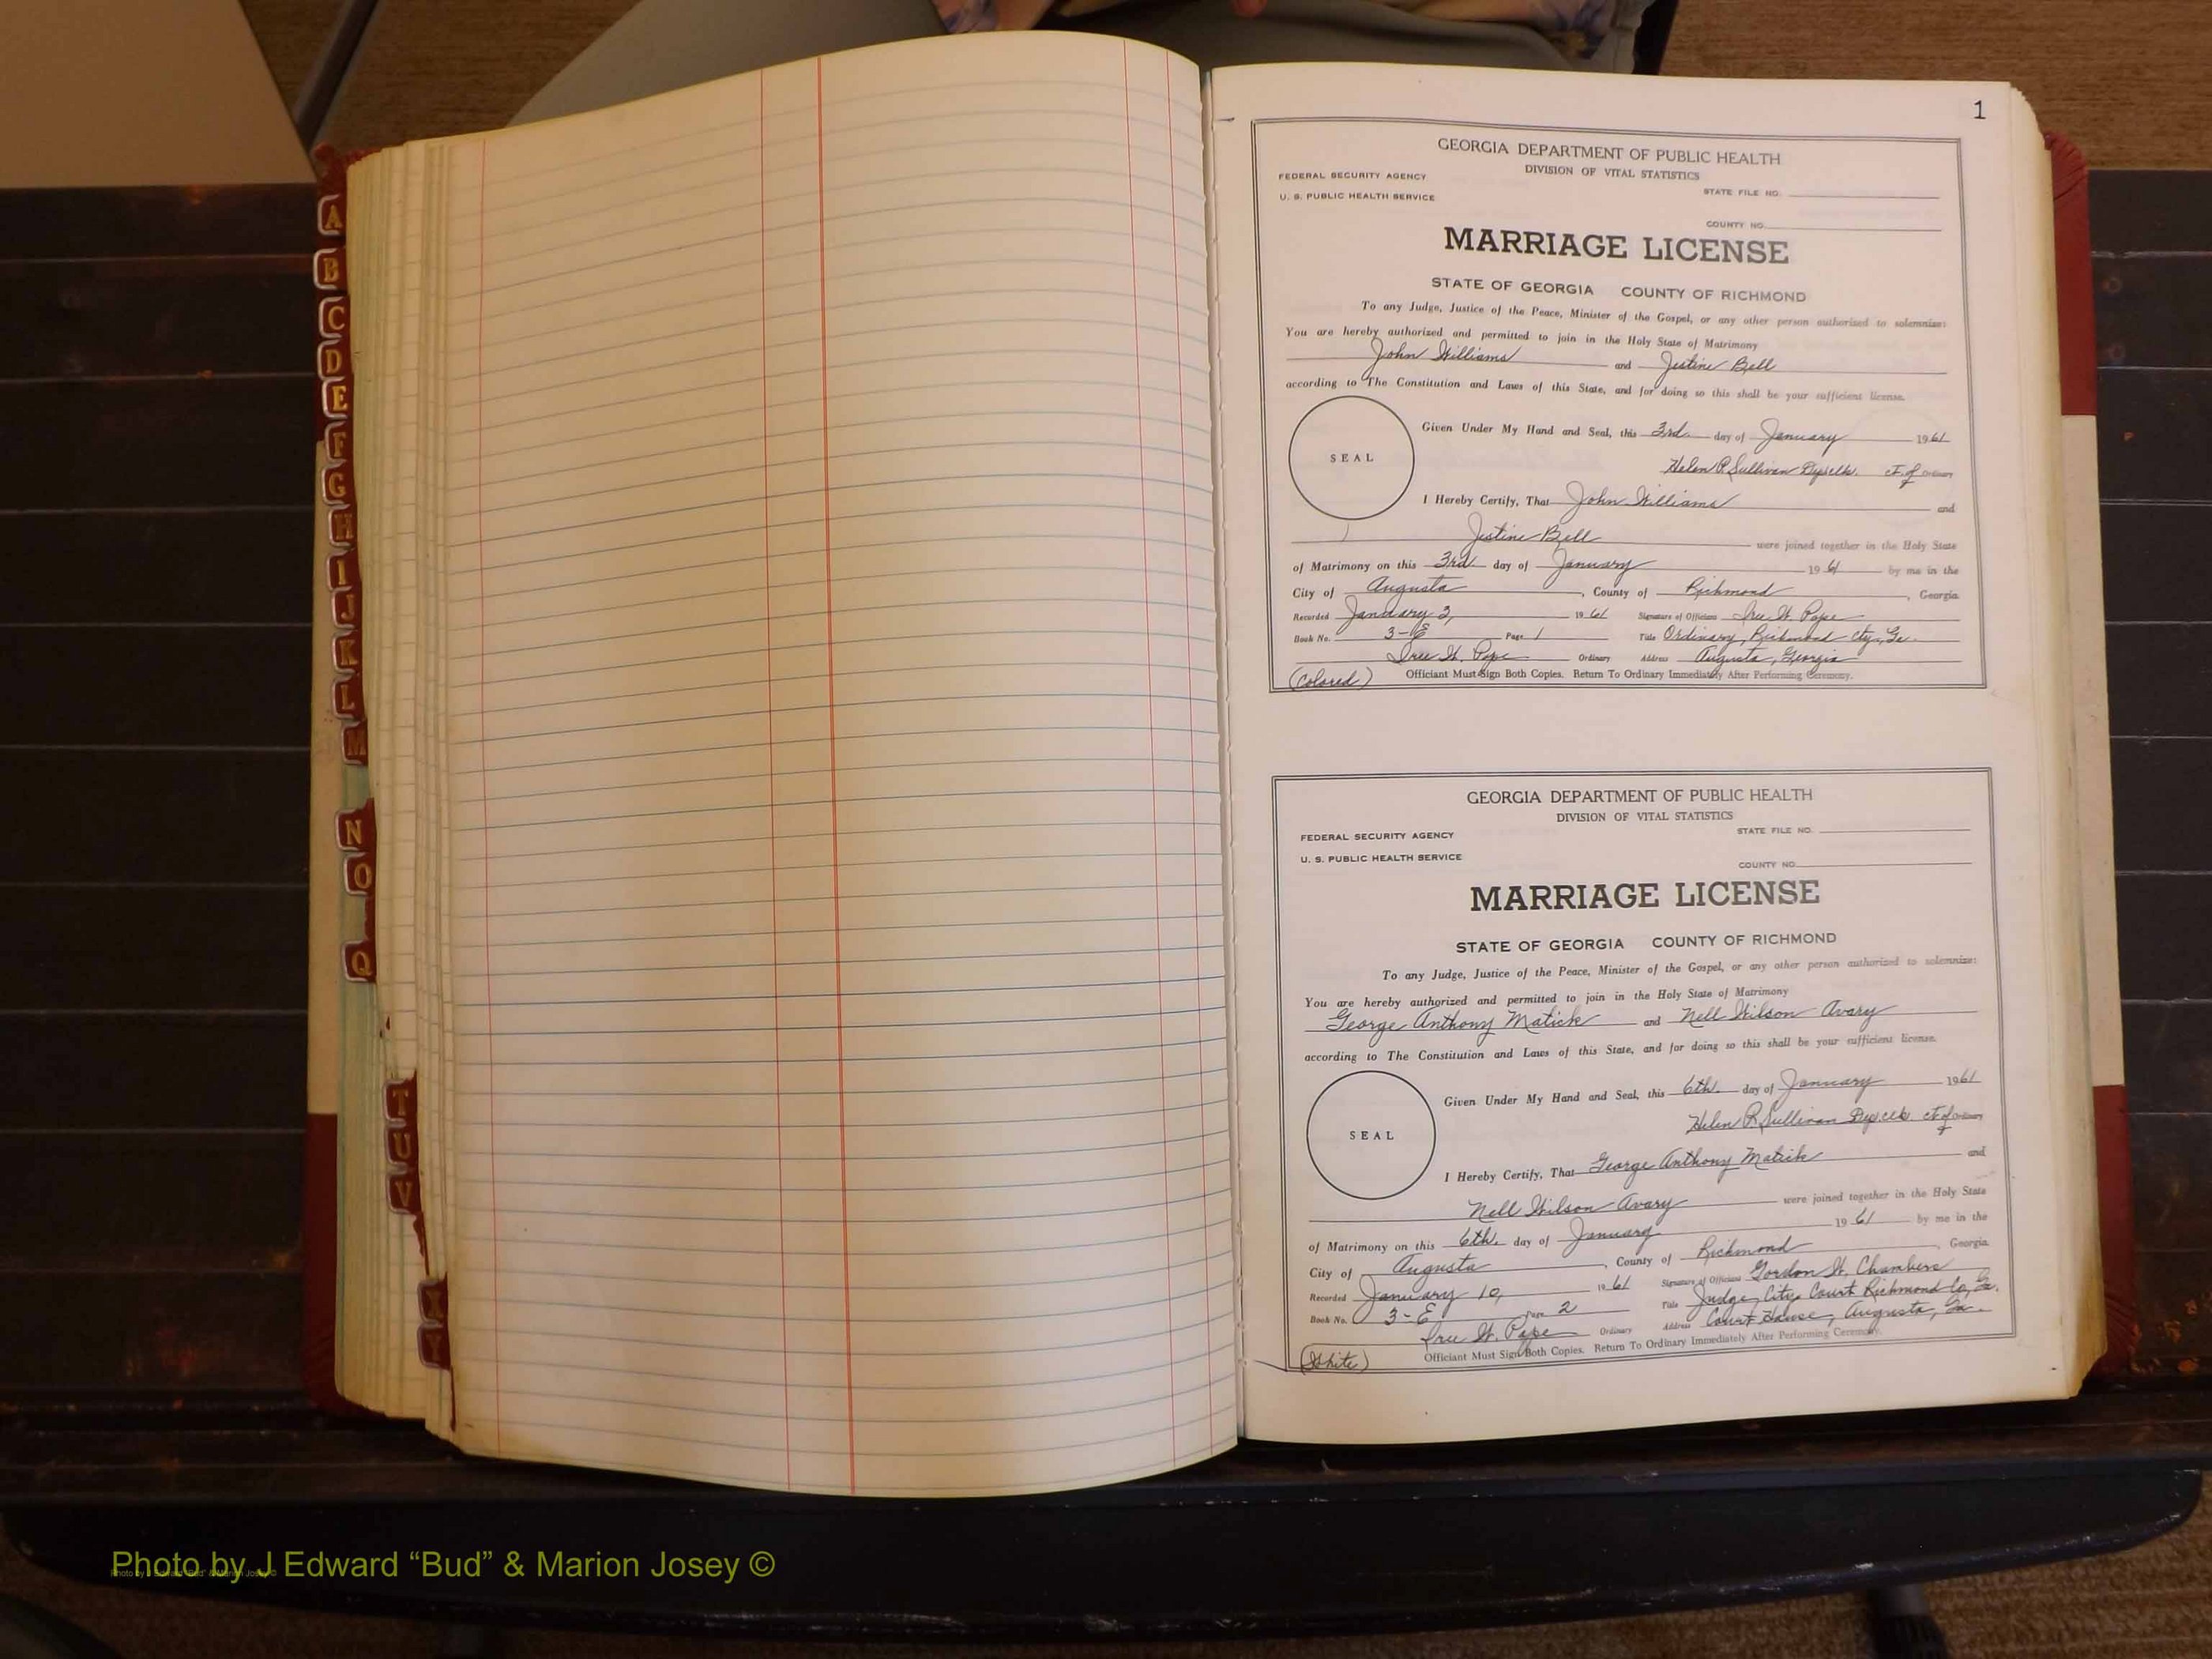 A
B
C
D
E
F
G
H
I
J
K
L
M
N
O
Q
T
U
V
1
GEORGIA DEPARTMENT OF PUBLIC HEALTH
DIVISION OF VITAL STATISTICS
FEDERAL SECURITY AGENCY
U. S. PUBLIC HEALTH SERVICE
STATE FILE NO.
COUNTY NO.
MARRIAGE LICENSE
STATE OF GEORGIA COUNTY OF RICHMOND
To any Judge, Justice of the Peace, Minister of the Gospel, or any other person authorized to solemnize:
You are hereby authorized and permitted to join in the Holy State of Matrimony
John Williams and Jestine Bell
according to The Constitution and Laws of this State, and for doing so this shall be your sufficient license.
SEAL
Given Under My Hand and Seal, this 3rd. day of January 1961
Helen R. Sullivan Dep. clk. ct. of Ordinary
I Hereby Certify, That John Williams and
Jestine Bell were joined together in the Holy State
of Matrimony on this 3rd day of January 1961 by me in the
City of Augusta, County of Richmond, Georgia
Recorded January 3, 1961 Signature of Officiant
Book No. 3-E Page 1 Title Ordinary, Richmond Cty., Ga.
Pope Ordinary Address Augusta, Georgia
(Colored) Officiant Must Sign Both Copies. Return To Ordinary Immediately After Performing Ceremony.
GEORGIA DEPARTMENT OF PUBLIC HEALTH
DIVISION OF VITAL STATISTICS
FEDERAL SECURITY AGENCY
U. S. PUBLIC HEALTH SERVICE
STATE FILE NO.
COUNTY NO.
MARRIAGE LICENSE
STATE OF GEORGIA COUNTY OF RICHMOND
To any Judge, Justice of the Peace, Minister of the Gospel, or any other person authorized to solemnize:
You are hereby authorized and permitted to join in the Holy State of Matrimony
George Anthony Matick and Nell Wilson Avary
according to The Constitution and Laws of this State, and for doing so this shall be your sufficient license.
SEAL
Given Under My Hand and Seal, this 6th. day of January 1961
Helen R. Sullivan Dep. clk. ct. of Ordinary
I Hereby Certify, That George Anthony Matick and
Nell Wilson Avary were joined together in the Holy State
of Matrimony on this 6th. day of January 1961 by me in the
City of Augusta, County of Richmond, Georgia
Recorded January 10, 1961 Signature of Officiant Gordon W. Chambers
Book No. 3-E Page 2 Title Judge, City Court Richmond Co., Ga.
Pope Ordinary Address Court House, Augusta, Ga.
(White) Officiant Must Sign Both Copies. Return To Ordinary Immediately After Performing Ceremony.
Photo by J Edward “Bud” & Marion Josey ©
Photo by J Edward “Bud” & Marion Josey ©